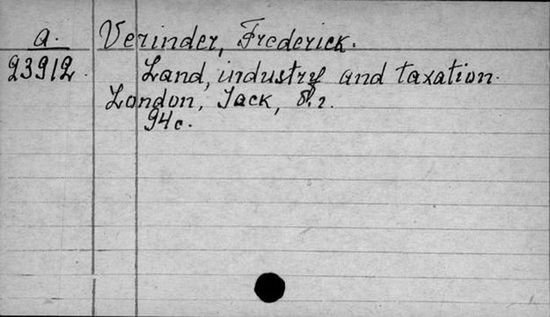 a. Verinder, Frederick.
23912. Land, industry and taxation.
London, Jack,
94 c.